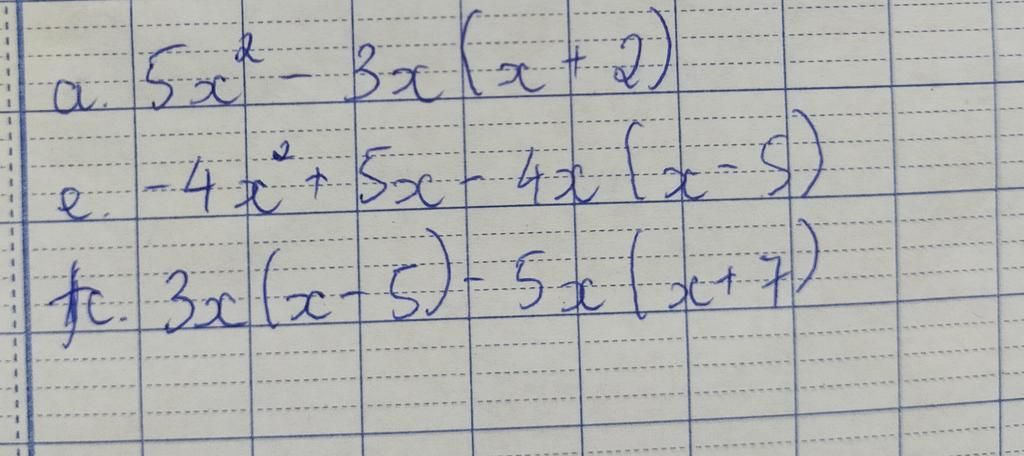 a. 5x² - 3x(x + 2)
e. -4x² + 5x - 4x(x - 5)
c. 3x(x - 5) - 5x(x + 7)